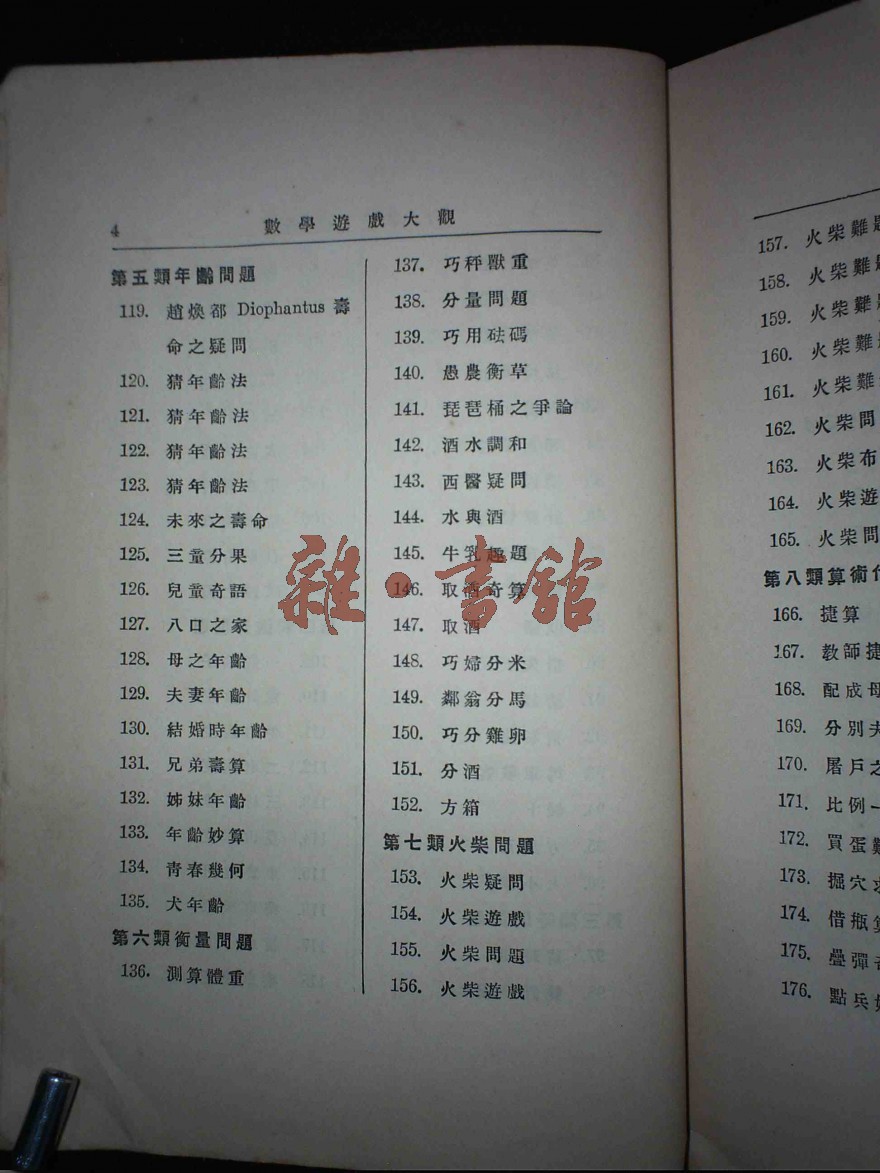 4
數學遊戲大觀
第五類年齡問題
119. 趙煥鄀 Diophantus 壽
命之疑問
120. 猜年齡法
121. 猜年齡法
122. 猜年齡法
123. 猜年齡法
124. 未來之壽命
125. 三童分果
126. 兒童奇語
127. 八口之家
128. 母之年齡
129. 夫妻年齡
130. 結婚時年齡
131. 兄弟壽算
132. 姊妹年齡
133. 年齡妙算
134. 青春幾何
135. 犬年齡
第六類衡量問題
136. 測算體重
137. 巧秤獸重
138. 分量問題
139. 巧用砝碼
140. 愚農衡草
141. 琵琶桶之爭論
142. 酒水調和
143. 西醫疑問
144. 水與酒
145. 牛乳趣題
146. 取酒奇算
147. 取酒
148. 巧婦分米
149. 鄰翁分馬
150. 巧分雞卵
151. 分酒
152. 方箱
第七類火柴問題
153. 火柴疑問
154. 火柴遊戲
155. 火柴問題
156. 火柴遊戲
157. 火柴難題
158. 火柴難
159. 火柴難
160. 火柴難
161. 火柴難
162. 火柴問
163. 火柴布
164. 火柴遊
165. 火柴問
第八類算術
166. 捷算
167. 教師捷
168. 配成
169. 分別
170. 屠戶之
171. 比例
172. 買蛋
173. 掘穴
174. 借瓶
175. 疊彈
176. 點兵
雜·書館